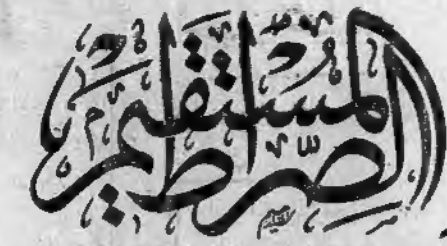 الصِّرَاطُ المُسْتَقِيمُ